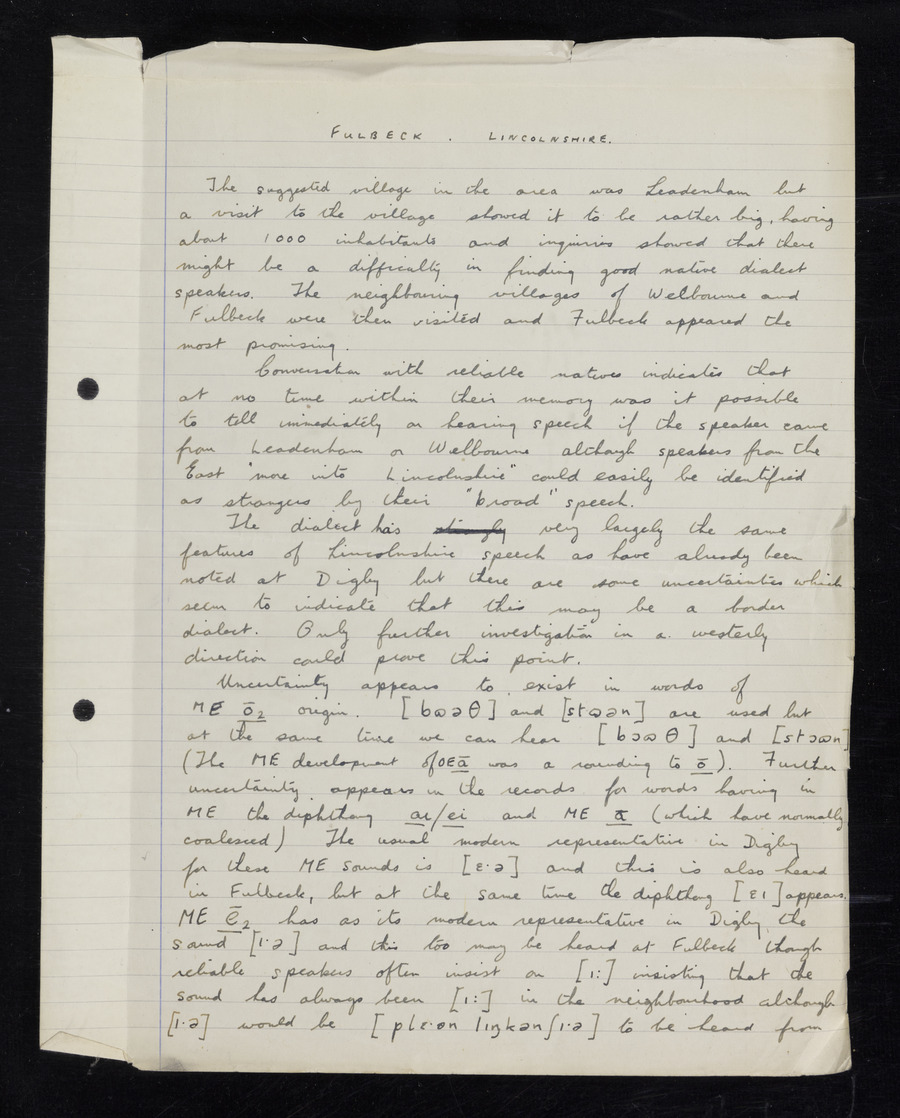 FULBECK . LINCOLNSHIRE.
The suggested village in the area was Leadenham but
a visit to the village showed it to be rather big, having
about 1000 inhabitants and inquiries showed that there
might be a difficulty in finding good native dialect
speakers. The neighbouring villages of Welbourne and
Fulbeck were then visited and Fulbeck appeared the
most promising.
Conversation with reliable natives indicates that
at no time within their memory was it possible
to tell immediately on hearing speech if the speaker came
from Leadenham or Welbourne although speakers from the
East "more into Lincolnshire" could easily be identified
as strangers by their "broad" speech.
The dialect has strongly very largely the same
features of Lincolnshire speech as have already been
noted at Digby but there are some uncertainties which
seem to indicate that this may be a border
dialect. Only further investigation in a westerly
direction could prove this point.
Uncertainty appears to exist in words of
ME ō₂ origin. [bɷəθ] and [stɷən] are used but
at the same time we can hear [bɔɷθ] and [stɔɷn]
(The ME development of OE ā was a rounding to ō). Further
uncertainty appears in the records for words having in
ME the diphthong ai/ei and ME ā (which have normally
coalesced) The usual modern representative in Digby
for these ME sounds is [ɛ·ə] and this is also heard
in Fulbeck, but at the same time the diphthong [ɛɪ] appears.
ME ē₂ has as its modern representative in Digby the
sound [ɪ·ə] and this too may be heard at Fulbeck though
reliable speakers often insist on [ɪ:] insisting that the
sound has always been [ɪ:] in the neighbourhood although
[ɪ·ə] would be [plɛ·ən lɪŋkənʃɪ·ə] to be heard from